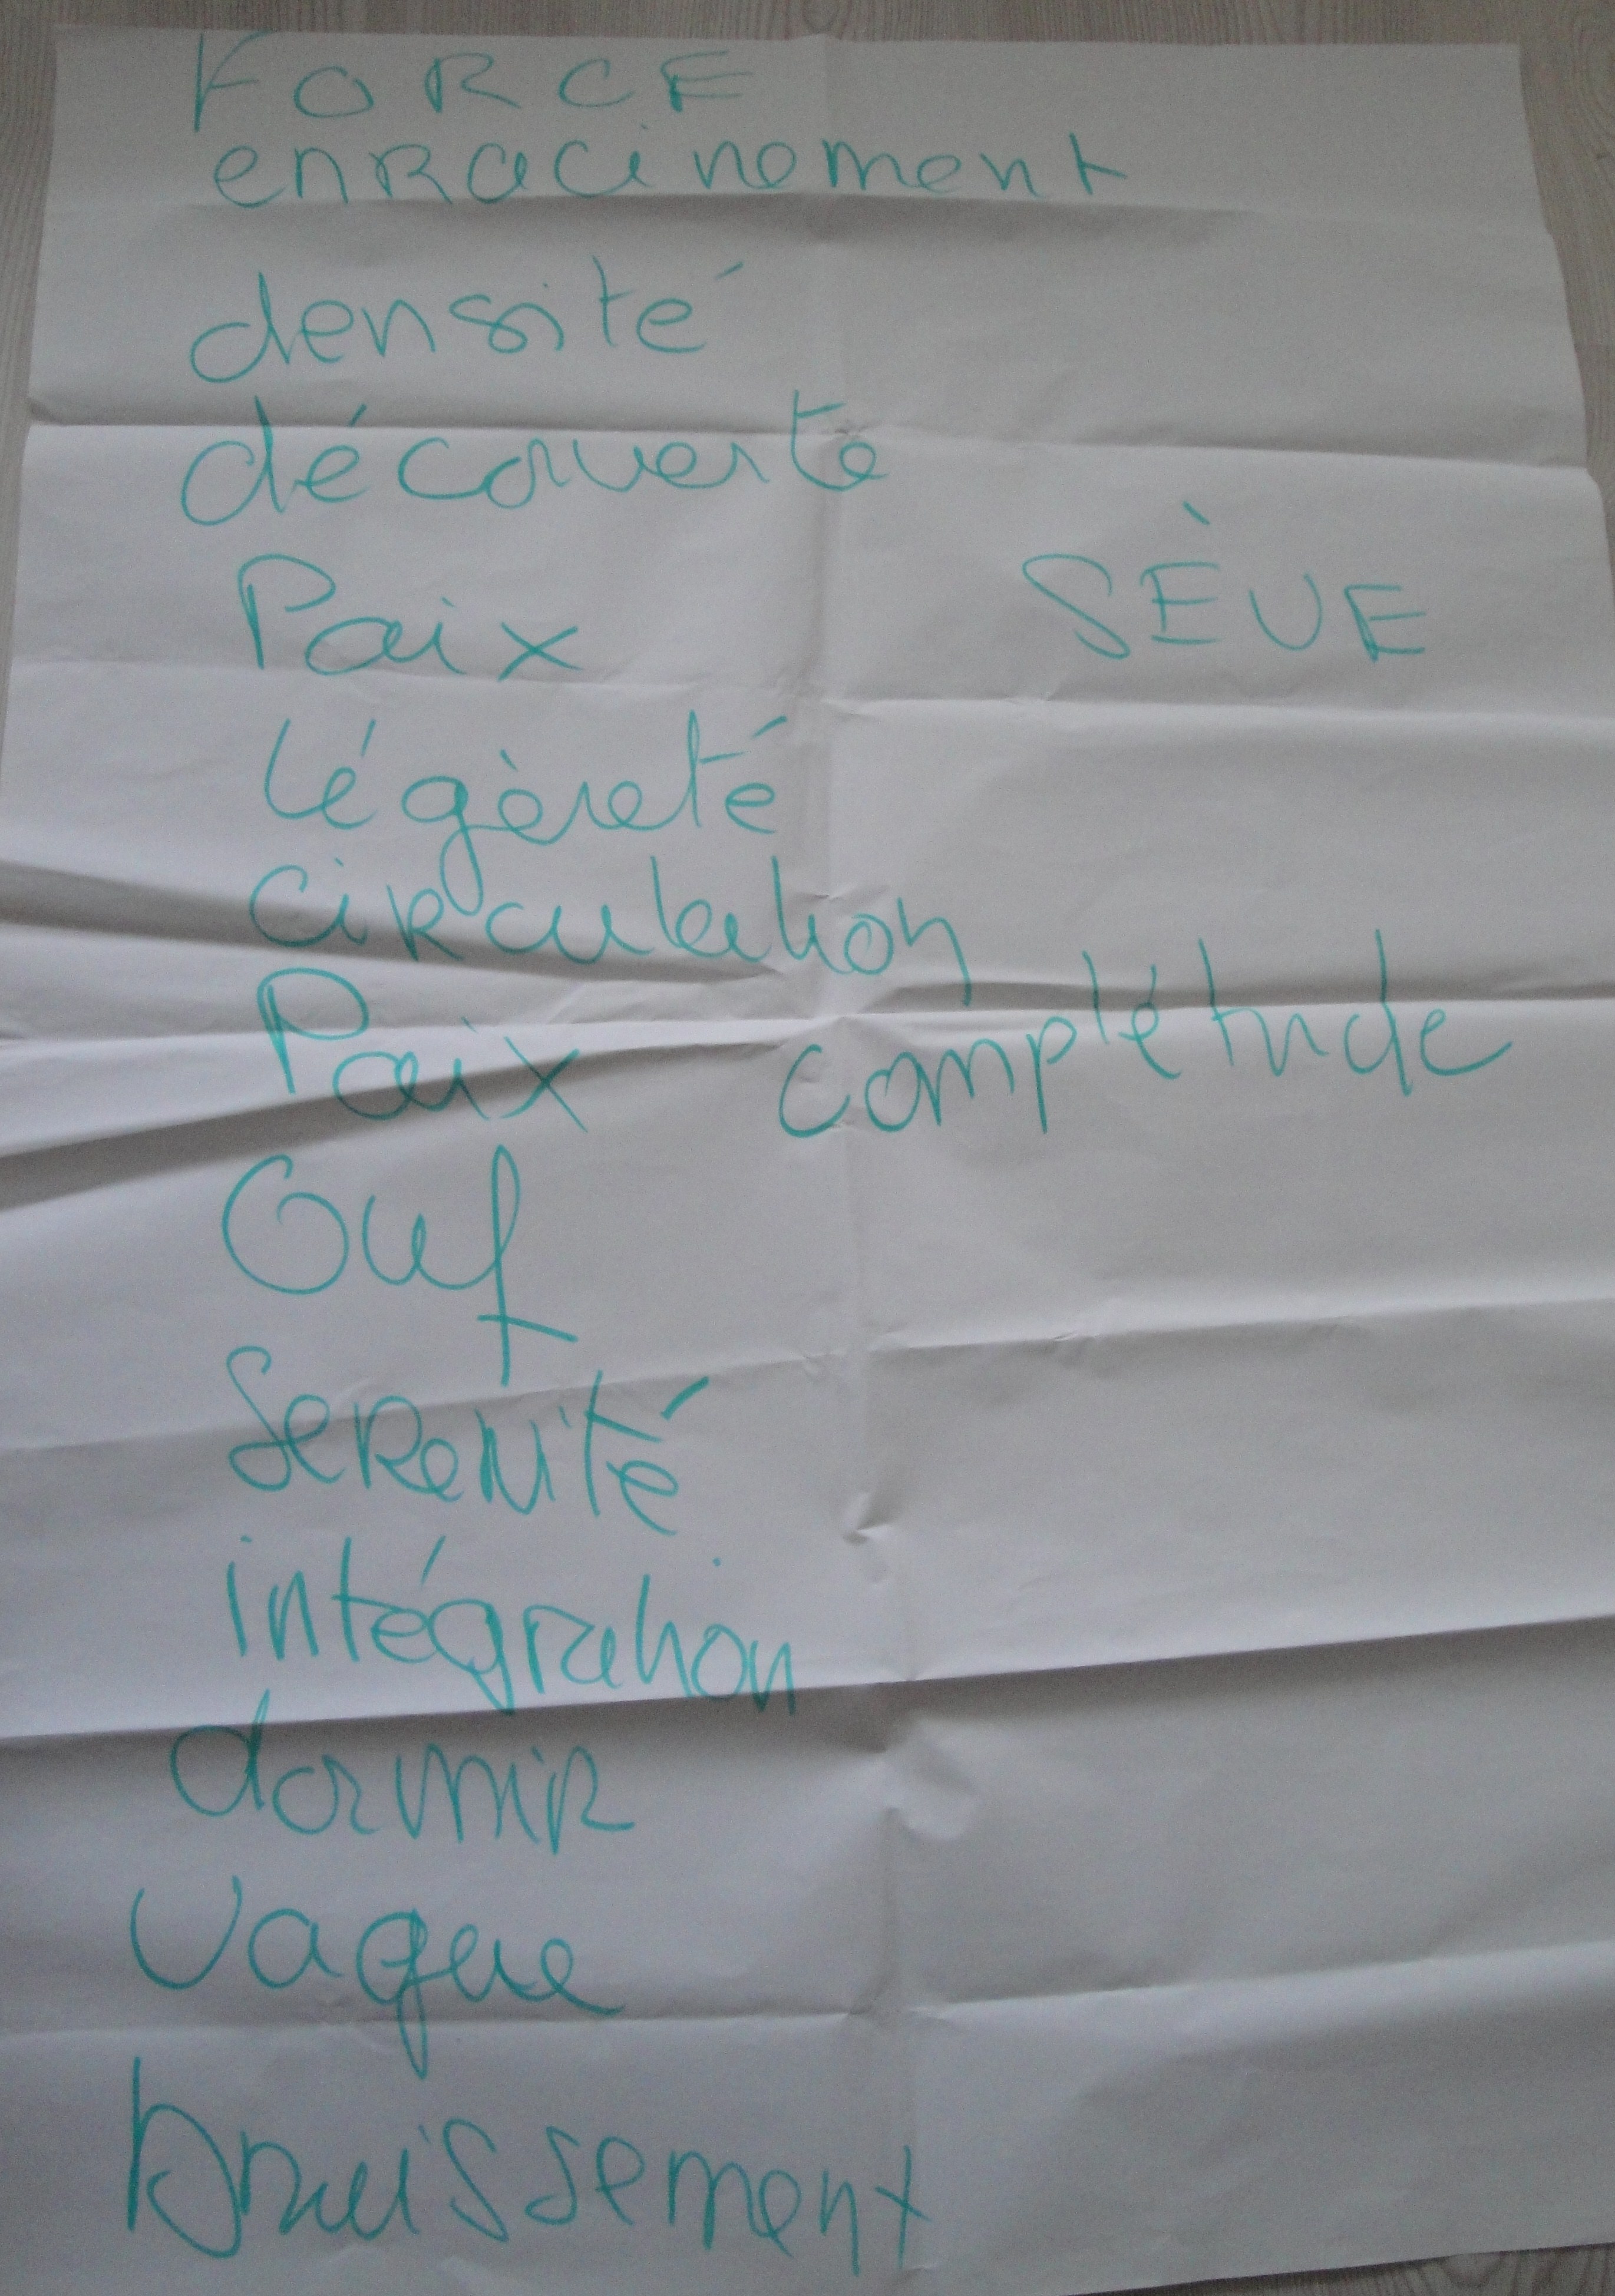 FORCE
enRacinement
densité
découverte
Paix SÈVE
légèreté
ciRculation
Paix complétude
Ouf
SeReNité
intégration
dormiR
Vague
bruissement